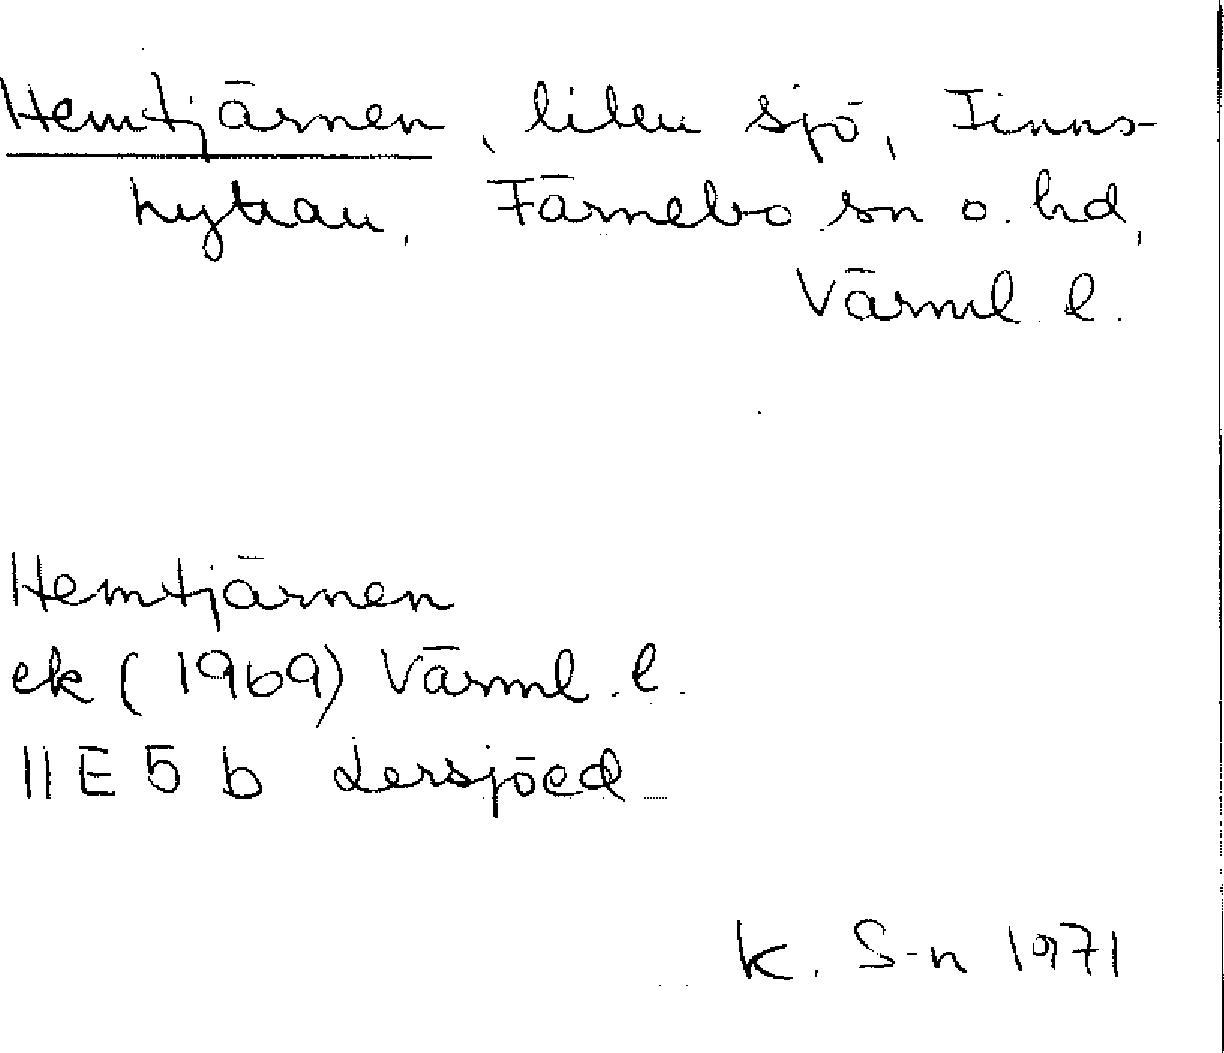 Hemtjärnen, liten sjö, Finns-
hyttan, Färnebo sn o. hd,
Värml. l.
Hemtjärnen
ek (1969) Värml. l.
11 E 5 b Lersjöed
K. S-n 1971